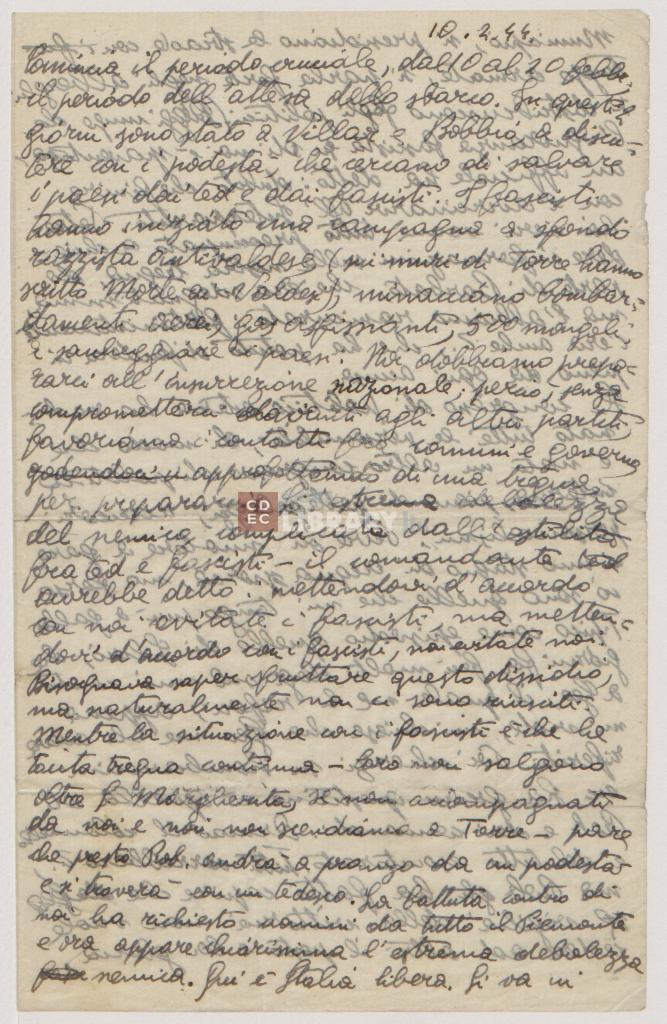 10.2.44.
Comincia il periodo cruciale, dall 10 al 20 febbr.
il periodo dell'attesa dello sbarco. In questi
giorni sono stato a Villar e Bobbio, a discu-
tere con i podestà, che cercano di salvare
i paesi dai ted e dai fascisti. I fascisti
hanno iniziato una campagna a sfondo
razzista antivaldese (sui muri di Torre hanno
scritto Morte ai Valdesi), minacciano bombar-
damenti aerei, gas asfissianti, 500 mongoli
e saccheggiare i paesi. Noi dobbiamo prepa-
rarci all'insurrezione nazionale, perciò, senza
comprometterci davanti agli altri partiti
favoriamo i contatti fra comuni e governo
godendoci approfittiamo di una tregua
per prepararci estrema debolezza
del nemico complicata dall'ostilità
fra ted e fascisti - il comandante ted
avrebbe detto: mettendovi d'accordo
con noi evitate i fascisti, ma metten-
dovi d'accordo con i fascisti, non evitate noi
Bisognava saper sfruttare questo dissidio,
ma naturalmente non ci sono riusciti.
Mentre la situazione con i fascisti è che la
tacita tregua continua - loro non salgono
oltre S. Margherita, se non accompagnati
da noi e noi non scendiamo a Torre - pare
che presto Rob. andrà a pranzo da un podestà
e si troverà con un tedesco. La battuta contro di
noi ha richiesto uomini da tutto il Piemonte
e ora appare chiarissima l'estrema debolezza
nemica. Qui è Italia libera. Si va in
CDEC LIBRARY